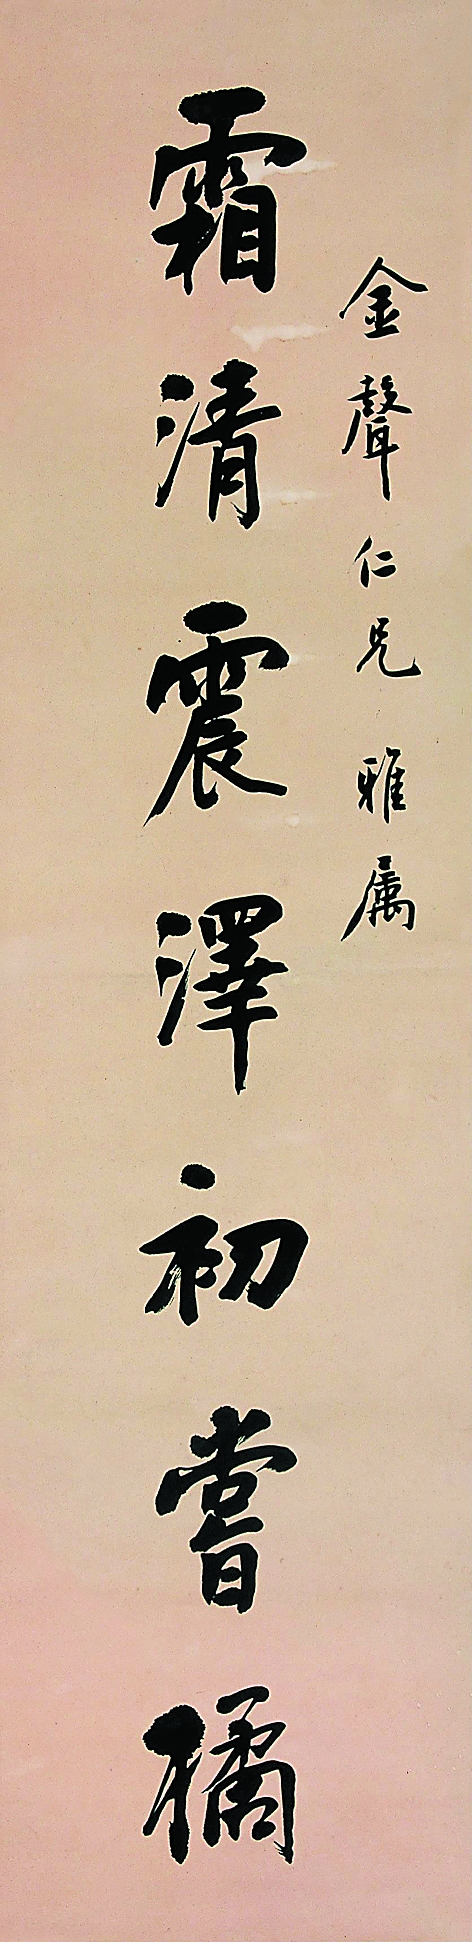 金聲仁兄 雅属
霜清震澤初嘗橘